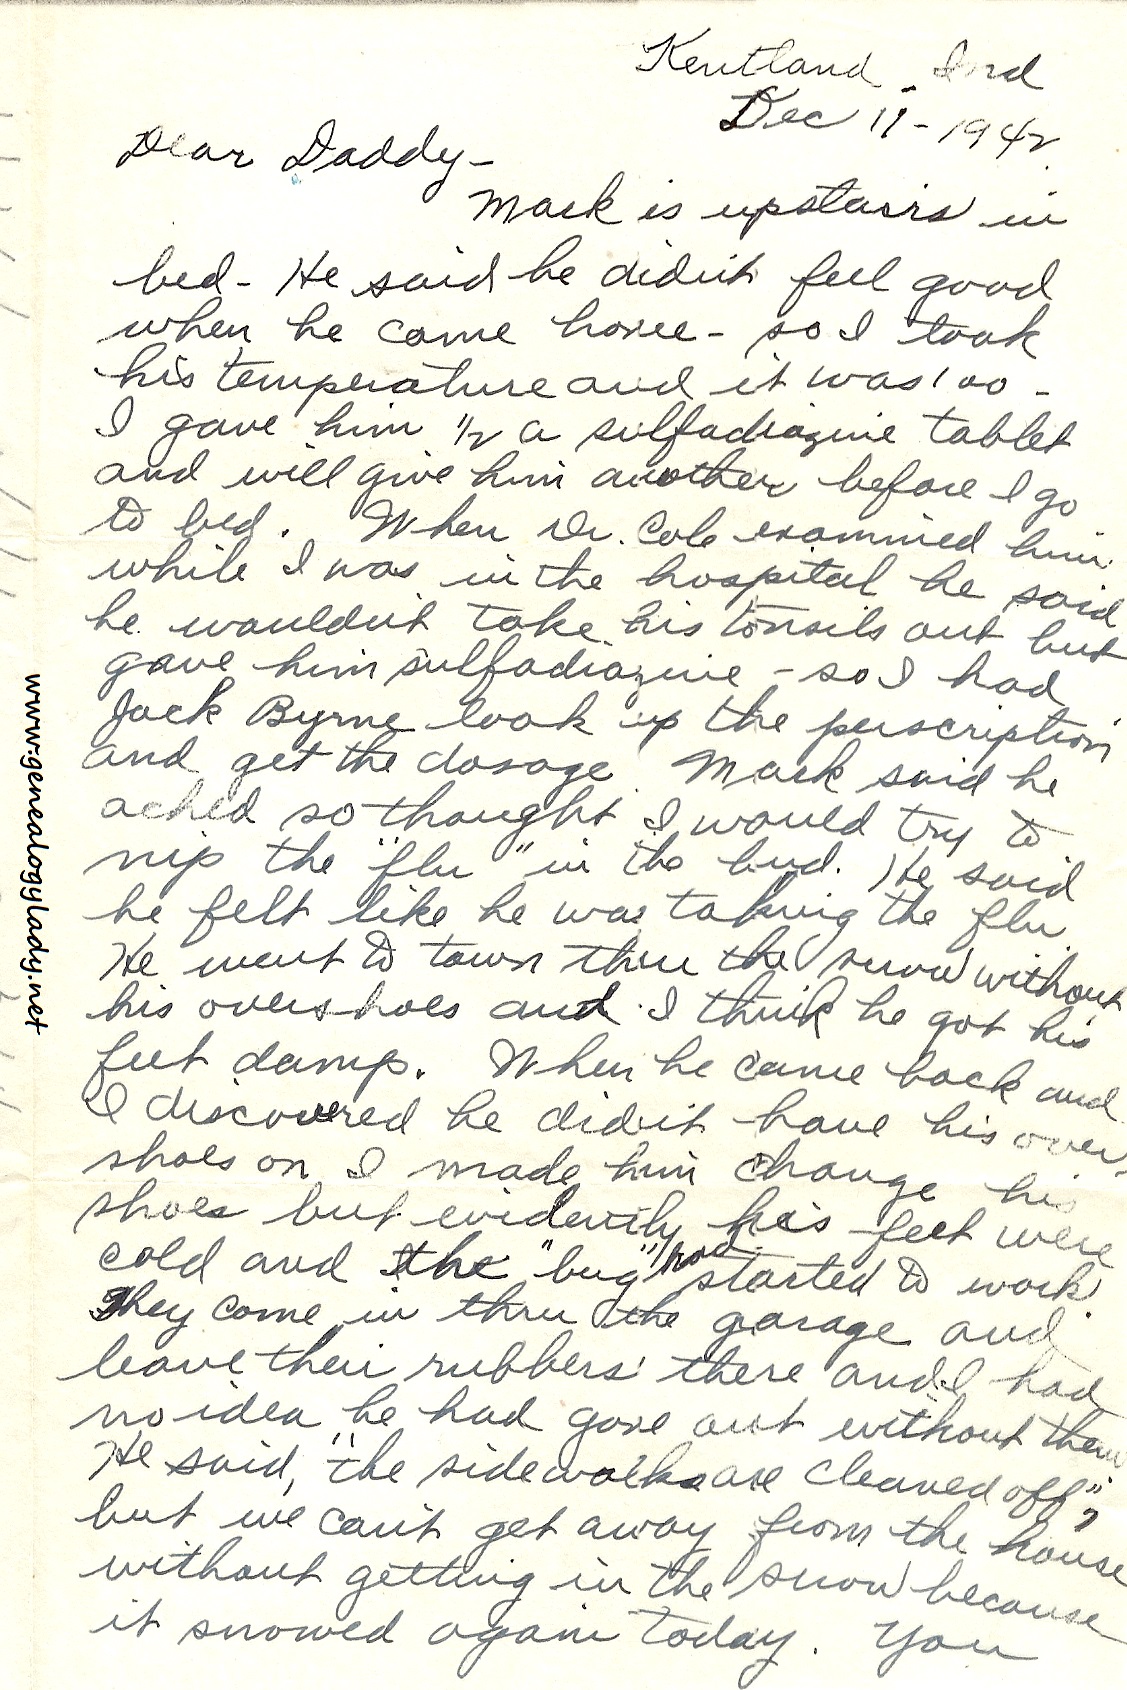 Kentland, Ind
Dec 11 - 1942.
Dear Daddy -
Mark is upstairs in
bed - He said he didn't feel good
when he came home - so I took
his temperature and it was 100 -
I gave him 1/2 a sulfadiazine tablet
and will give him another before I go
to bed. When Dr. Cole examined him
while I was in the hospital he said
he wouldn't take his tonsils out but
gave him sulfadiazine - so I had
Jack Byrne look up the perscription
and get the dosage. Mark said he
ached so thought I would try to
nip the "flu" in the bud. He said
he felt like he was taking the flu
He went to town thru the snow without
his overshoes and I think he got his
feet damp. When he came back and
I discovered he didn't have his over-
shoes on I made him change his
shoes but evidently his feet were
cold and the "bug" had started to work.
They come in thru the garage and
leave their rubbers there and I had
no idea he had gone out without them
He said, "the sidewalks are cleaned off",
but we can't get away from the house
without getting in the snow because
it snowed again today. You
www.genealogylady.net